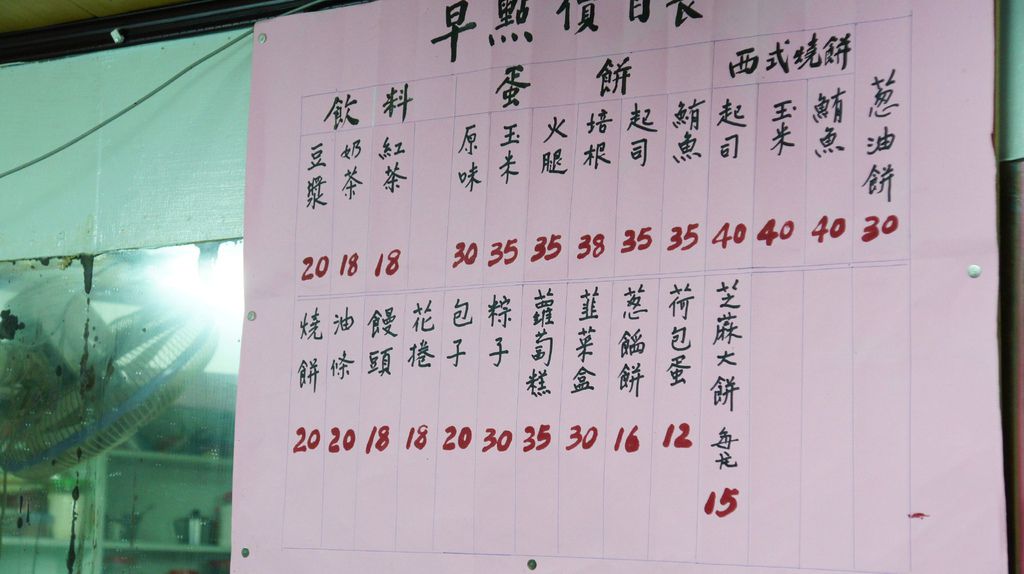 早點價目表
飲料
豆漿 20
奶茶 18
紅茶 18
蛋餅
原味 30
玉米 35
火腿 35
培根 38
起司 35
鮪魚 35
西式燒餅
起司 40
玉米 40
鮪魚 40
葱油餅 30
燒餅 20
油條 20
饅頭 18
花捲 18
包子 20
粽子 30
蘿蔔糕 35
韮菜盒 30
葱餡餅 16
荷包蛋 12
芝蔴大餅 每片 15